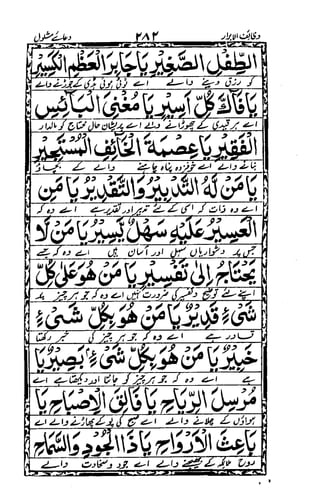 وظائف الابرار ۲۸۲ دعائے مشلول
الطِّفْلِ الصَّغِيْرِ يَا جَابِرَ الْعَظْمِ الْكَسِيْرِ
کو رزق دینے والے اے ٹوٹی ہوئی ہڈی کے جوڑنے والے
يَا فَاكَّ كُلِّ اَسِيْرٍ يَا مُغْنِيَ الْبَآئِسِ
اے ہر قیدی کے چھوڑانے والے اے پریشان حال محتاج کو مالدار
الْفَقِيْرِ يَا عِصْمَةَ الْخَآئِفِ الْمُسْتَجِيْرِ
بنانے والے اے خوفزدہ پناہ چاہنے والے کے بچاؤ
يَا مَنْ لَهُ التَّدْبِيْرُ وَالتَّقْدِيْرُ يَا مَنِ
اے وہ ذات کہ اسی کے لئے تدبیر اور تقدیر ہے اے وہ کہ
الْعَسِيْرُ عَلَيْهِ سَهْلٌ يَّسِيْرٌ يَا مَنْ لَا
جس پر دشواریاں سہل اور آسان ہیں اے وہ کہ
يَحْتَاجُ اِلٰى تَفْسِيْرٍ يَا مَنْ هُوَ عَلٰى كُلِّ
توضیح و تفسیر کی ضرورت نہیں اے وہ کہ جو ہر چیز پر
شَیْءٍ قَدِيْرٌ يَا مَنْ هُوَ بِكُلِّ شَیْءٍ
قادر ہے اے وہ کہ جو ہر چیز کی خبر رکھتا
خَبِيْرٌ يَا مَنْ هُوَ بِكُلِّ شَیْءٍ بَصِيْرٌ يَا
ہے اے وہ کہ جو ہر چیز کو جانتا اور دیکھتا ہے اے
مُرْسِلَ الرِّيَاحِ يَا فَالِقَ الْاِصْبَاحِ يَا
ہواؤں کے چلانے والے اے صبح کی پو کے پھاڑنے والے اے
بَاعِثَ الْاَرْوَاحِ يَا ذَا الْجُوْدِ وَالسَّمَاحِ
روح کے بھیجنے والے اے جود و سخاوت والے